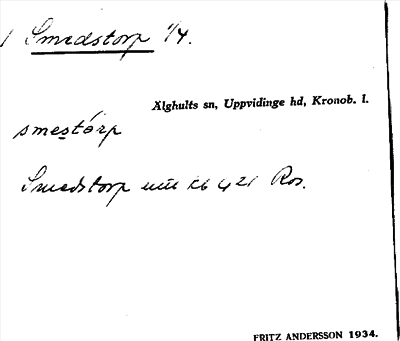 1 Smedstorp 1/4.
Älghults sn, Uppvidinge hd, Kronob. l.
smestórp
Smedstorp Ros.
FRITZ ANDERSSON 1934.